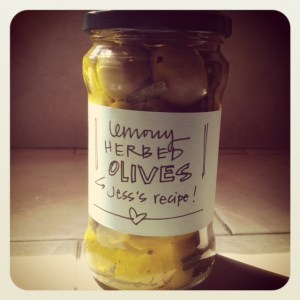 lemony
HERBED
OLIVES
Jess's recipe!